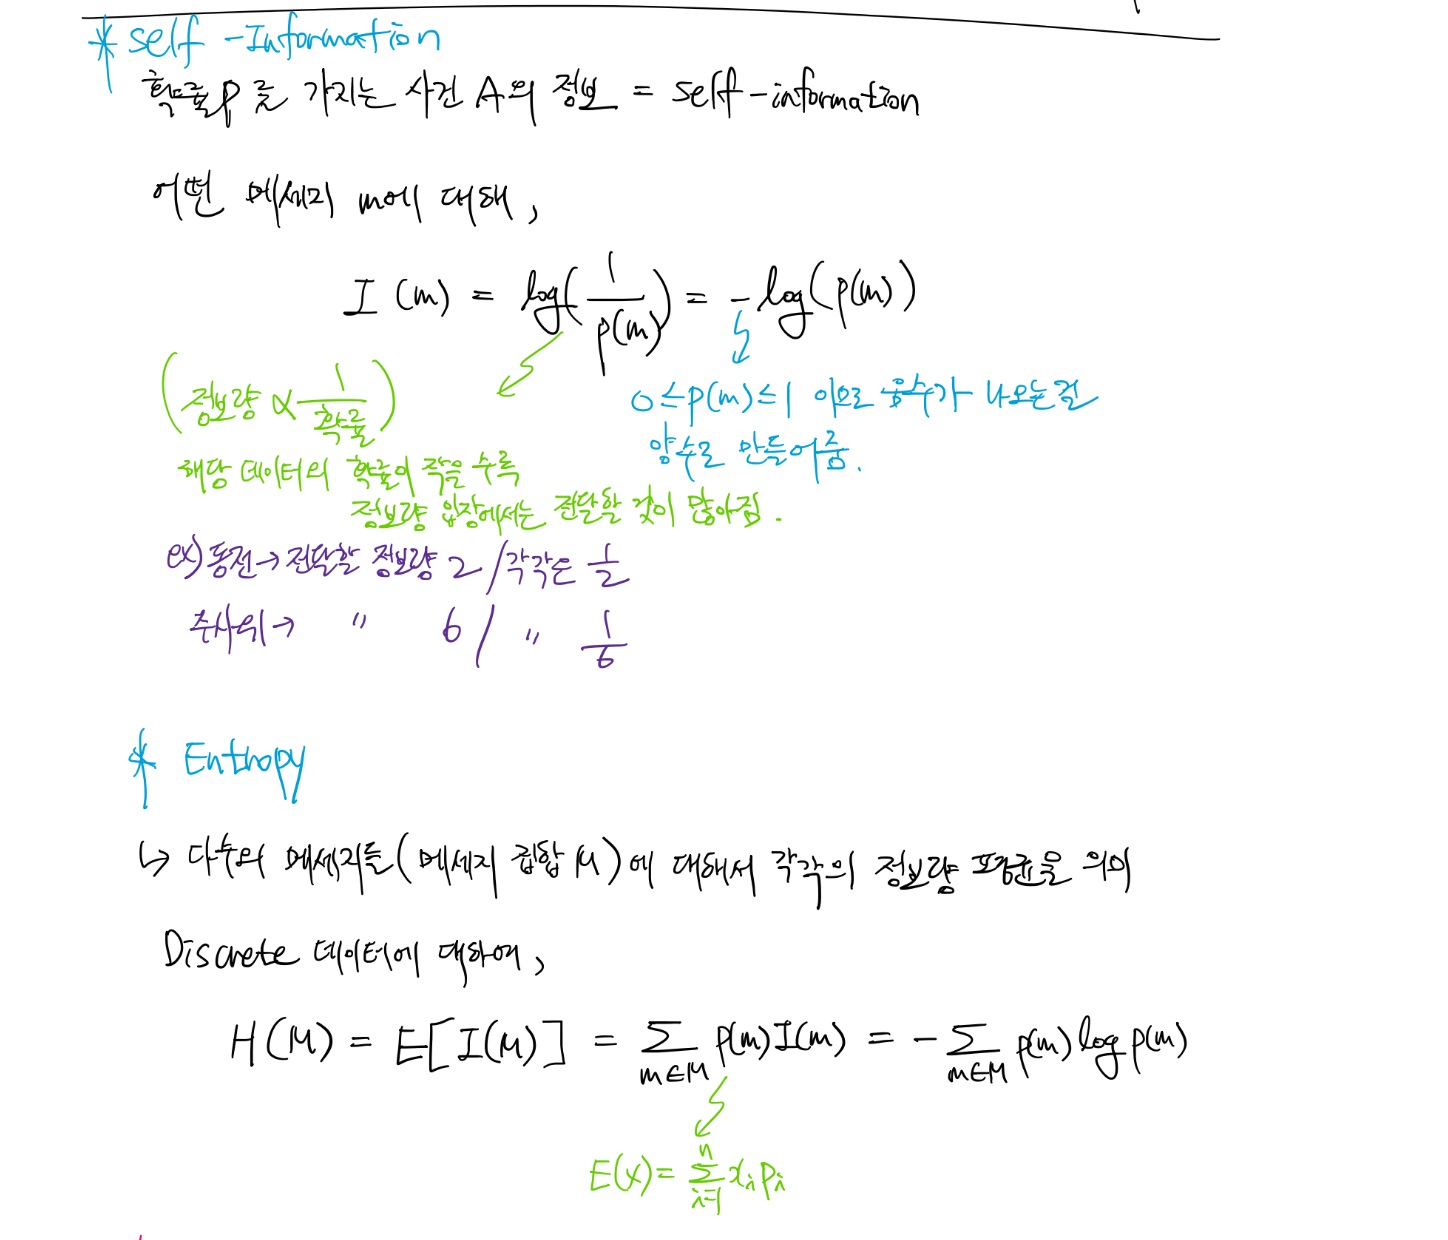 * self-Information
확률 P를 가지는 사건 A의 정보 = self-information
어떤 메세지 m에 대해,
I(m) = log(1/p(m)) = -log(p(m))
(정보량 ∝ 1/확률)
0 ≤ p(m) ≤ 1 이므로 음수가 나오는걸
양수로 만들어줌.
해당 데이터의 확률이 작을 수록
정보량 입장에서는 전달할 것이 많아짐.
ex) 동전 → 전달할 정보량 2 / 각각은 1/2
주사위 → " 6 / " 1/6
* Entropy
↳ 다수의 메세지들(메세지 집합 M)에 대해서 각각의 정보량 평균을 의미
Discrete 데이터에 대하여,
H(M) = E[I(M)] = ∑_{m∈M} p(m)I(m) = -∑_{m∈M} p(m) log p(m)
E(x) = ∑_{i=1}^{n} x_i p_i